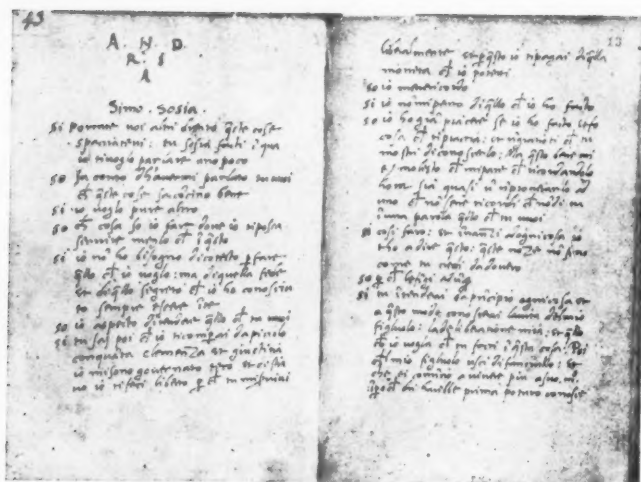 43
A . N . D.
R . I
A
Simo . Sosia .
Si Portate voi altri drento q̃ste cose
spacciatevi: tu sosia fatti i qua
io ti voglo parlare uno poco
So Fa conto d'havermi parlato tu vuoi
ch̃ q̃ste cose s'acconcino bene
Si io voglo pure altro
So ch̃ cosa so io fare dove io ti possa
servire meglo ch̃ i q̃sto
Si io nõ ho bisogno di cotesto p̱ fare
q̃llo ch̃ io voglo: ma di quella fede
et di q̃llo segreto ch̃ io ho conosciu
to sempre essere i te
So io aspetto d'intendere q̃llo ch̃ tu vuoi
Si tu sai poi ch̃ io ti comprai da piccolo
con quanta clemenza et giustitia
io mi sono governato teco et di stia
vo io ti feci libero p̱ ch̃ tu mi servivi
13
liberalmente et p̱ q̃sto io ti pagai di q̃lla
moneta ch̃ io potevi
So io me ne ricordo
Si io nõ mi pento di q̃llo ch̃ io ho facto
So io ho grã piacere se io ho facto
cosa ch̃ ti piaccia: et ch̃ tu
mostri di conoscerlo: Ma q̃sto bene mi
è molesto ch̃ mi pare ch̃ ricordandolo
hora sia quasi ũ rimproverarlo ad
uno ch̃ nõ se ne ricordi ch̃ nõ di tu
i una parola q̃llo ch̃ tu vuoi
Si cosi faro: et inanzi ad ogni cosa io
tho a dire q̃sto: q̃ste noze nõ sono
come tu credi da dovero
So p̱ ch̃ le fingi adũq̃
Si tu intenderai da principio ogni cosa et
a q̃sto modo conoscerai la vita del mio
figluolo: la deliberatione mia: et q̃llo
ch̃ io vogla ch̃ tu facci i q̃sta cosa: Poi
ch̃ l mio figluolo usci di fanciullo: et
che ei comincio a vivere più a suo mõ
prima potuto conosce